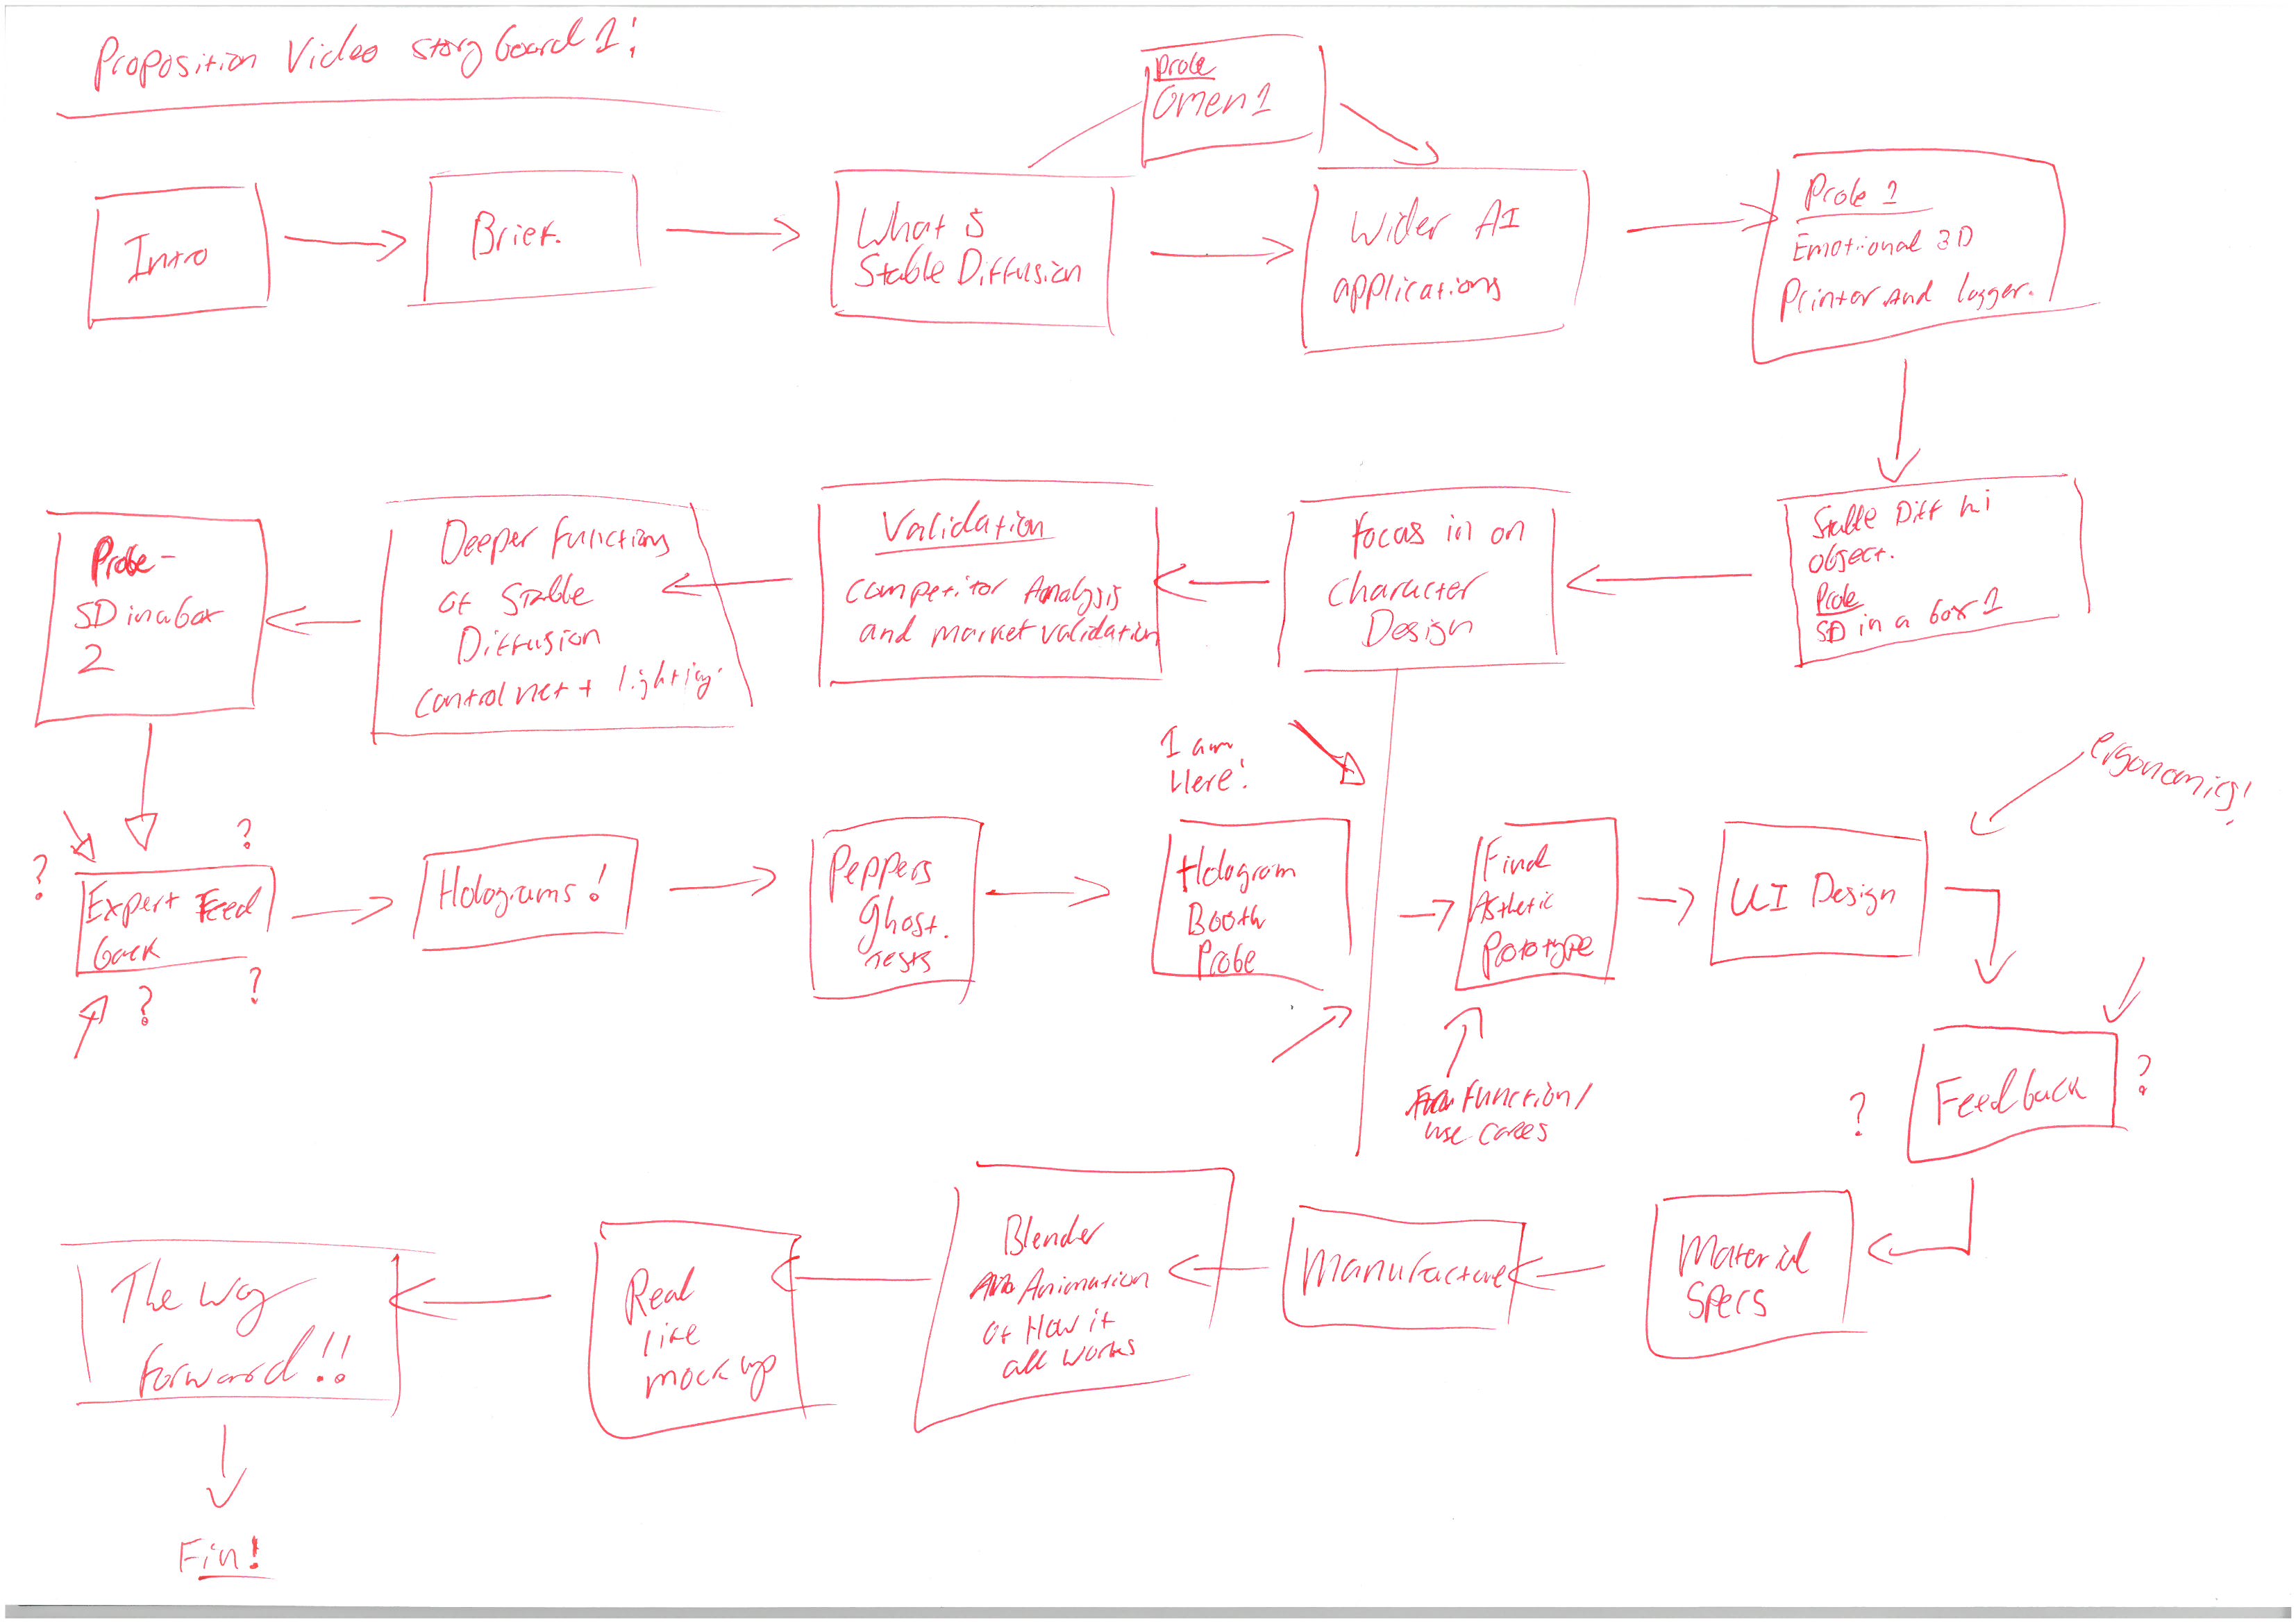 Proposition Video storyboard 1:
Probe
Omen 1
Intro
Brief.
What is
Stable Diffusion
Wider AI
applications
Probe 1
Emotional 3D
Printer And logger.
Stable Diff hi
object.
Probe
SD in a box 1
focus in on
character
Design
Validation
competitor Analysis
and market validation
Deeper functions
of Stable
Diffusion
control net + lighting.
Probe -
SD in a box
2
I am
Here!
ergonomics!
?
?
Expert Feed
back
?
?
Holograms!
Peppers
Ghost.
Tests
Hologram
Booth
Probe
Final
Asthetic
Prototype
UI Design
Function/
use cases
Feedback
?
?
Material
Specs
Manufacture
Blender
Animation
of How it
all works
Real
life
mock up
The way
forward!!
Fin!